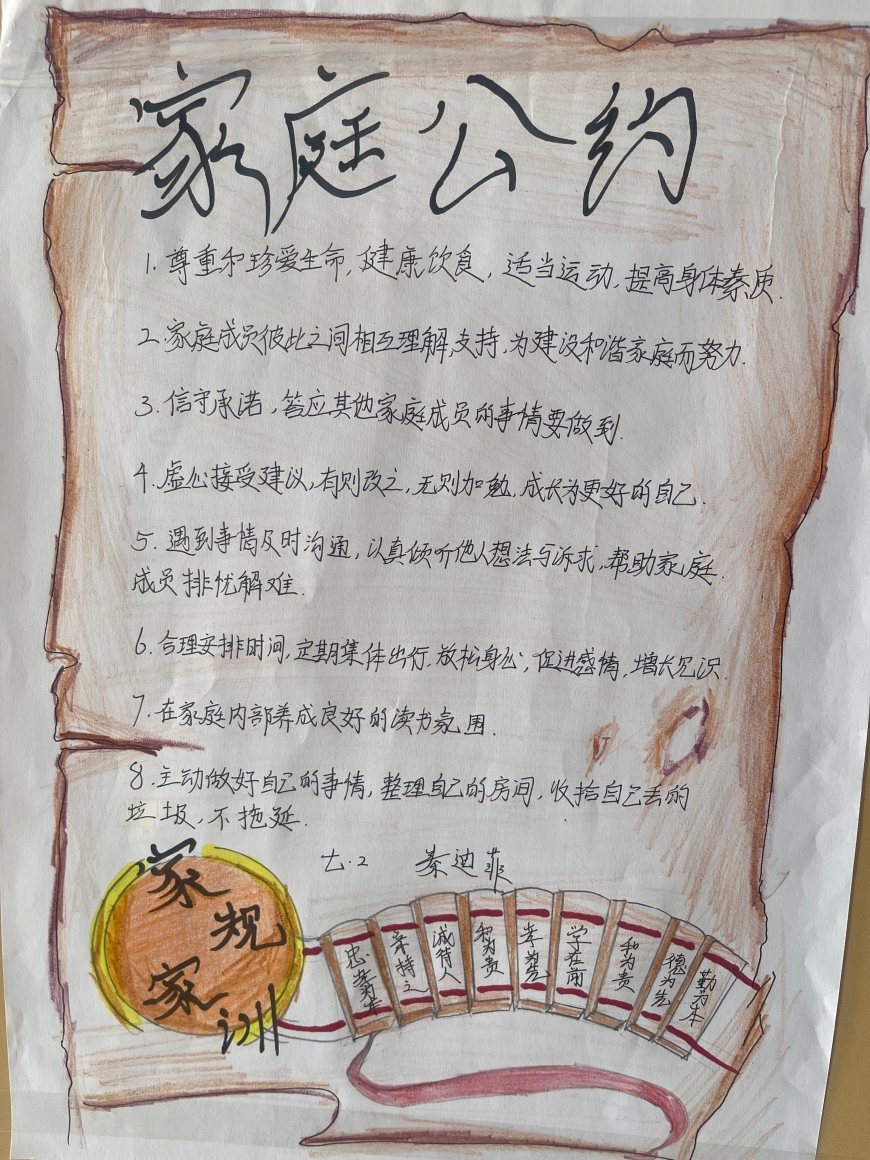 家庭公约
1. 尊重和珍爱生命,健康饮食,适当运动,提高身体素质.
2. 家庭成员彼此之间相互理解,支持,为建设和谐家庭而努力.
3. 信守承诺,答应其他家庭成员的事情要做到.
4. 虚心接受建议,有则改之,无则加勉,成长为更好的自己.
5. 遇到事情及时沟通,认真倾听他人想法与诉求,帮助家庭
成员排忧解难.
6. 合理安排时间,定期集体出行,放松身心,促进感情,增长见识.
7. 在家庭内部养成良好的读书氛围.
8. 主动做好自己的事情,整理自己的房间,收拾自己丢的
垃圾,不拖延.
七.2 秦迪菲
家规
家训
诚待人
和为贵
孝为先
学在前
和为贵
德为先
勤为本